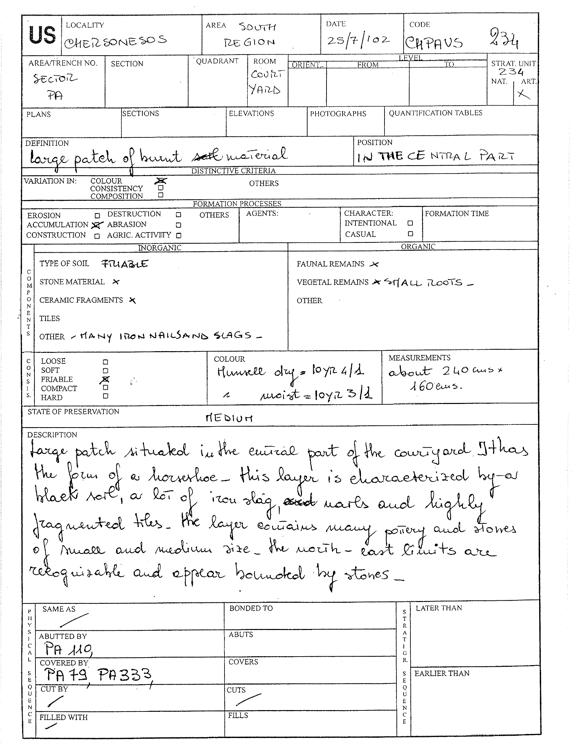 US
LOCALITY
CHERSONESOS
AREA SOUTH
REGION
DATE
25/7/02
CODE
CHPAUS 234
AREA/TRENCH NO.
SECTOR
PA
SECTION
QUADRANT
ROOM
COURT
YARD
LEVEL
ORIENT.
FROM
TO
STRAT. UNIT
234
NAT. ART.
X
PLANS
SECTIONS
ELEVATIONS
PHOTOGRAPHS
QUANTIFICATION TABLES
DEFINITION
large patch of burnt soil material
POSITION
IN THE CENTRAL PART
DISTINCTIVE CRITERIA
VARIATION IN:
COLOUR X
CONSISTENCY
COMPOSITION
OTHERS
FORMATION PROCESSES
EROSION
ACCUMULATION X
CONSTRUCTION
DESTRUCTION
ABRASION
AGRIC. ACTIVITY
OTHERS
AGENTS:
CHARACTER:
INTENTIONAL
CASUAL
FORMATION TIME
COMPONENTS
INORGANIC
TYPE OF SOIL FRIABLE
STONE MATERIAL X
CERAMIC FRAGMENTS X
TILES
OTHER - MANY IRON NAILS AND SLAGS -
ORGANIC
FAUNAL REMAINS X
VEGETAL REMAINS X SMALL ROOTS -
OTHER
CONSIS.
LOOSE
SOFT
FRIABLE X
COMPACT
HARD
COLOUR
Munsell dry = 10YR 4/1
" moist = 10YR 3/1
MEASUREMENTS
about 240 cms x
160 cms.
STATE OF PRESERVATION
MEDIUM
DESCRIPTION
Large patch situated in the central part of the courtyard It has
the form of a horseshoe - this layer is characterized by a
black soil, a lot of iron slag, and nails and highly
fragmented tiles - the layer contains many pottery and stones
of small and medium size - the north - east limits are
recognizable and appear bounded by stones -
PHYSICAL SEQUENCE
SAME AS
ABUTTED BY
PA 110,
COVERED BY
PA 79, PA 333,
CUT BY
FILLED WITH
BONDED TO
ABUTS
COVERS
CUTS
FILLS
STRATIGR. SEQUENCE
LATER THAN
EARLIER THAN